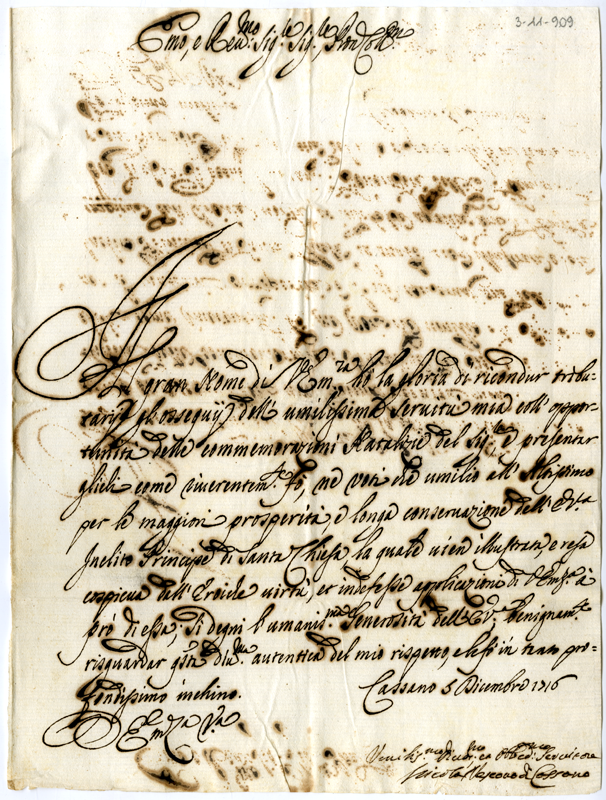 3-11-909
Emo, e Reu.mo Sig.re Sig.re Pron Coll.mo
Al gran Nome di V. Em.za hò la gloria di ricondur tribu-
tarij gl'ossequij dell' umilissima seruitù mia coll' oppor-
tunità delle commemorazioni Natalizie del Sig.re e presentar
glieli come riuerentem.te fò, ne voti che umilio all' Altissimo
per le maggiori prosperità e longa conseruazione dell' E.V.a
Inclito Principe di Santa Chiesa la quale uien' illustrata, e resa
cospicua dall' Eroiche uirtù, et indefesse applicazioni di V. Em.za à
prò di essa; Si degni l'umaniss.ma Generosità dell' E.V. benignam.te
risguardar q.sta autentica del mio rispetto, e in tanto pro-
fondissimo inchino. Cassano 5 Dicembre 1716
Di Em.za V.a
Umilis.mo Diuot.mo ed Obb.mo Seruitore
Nicolò Vescouo di Cassano